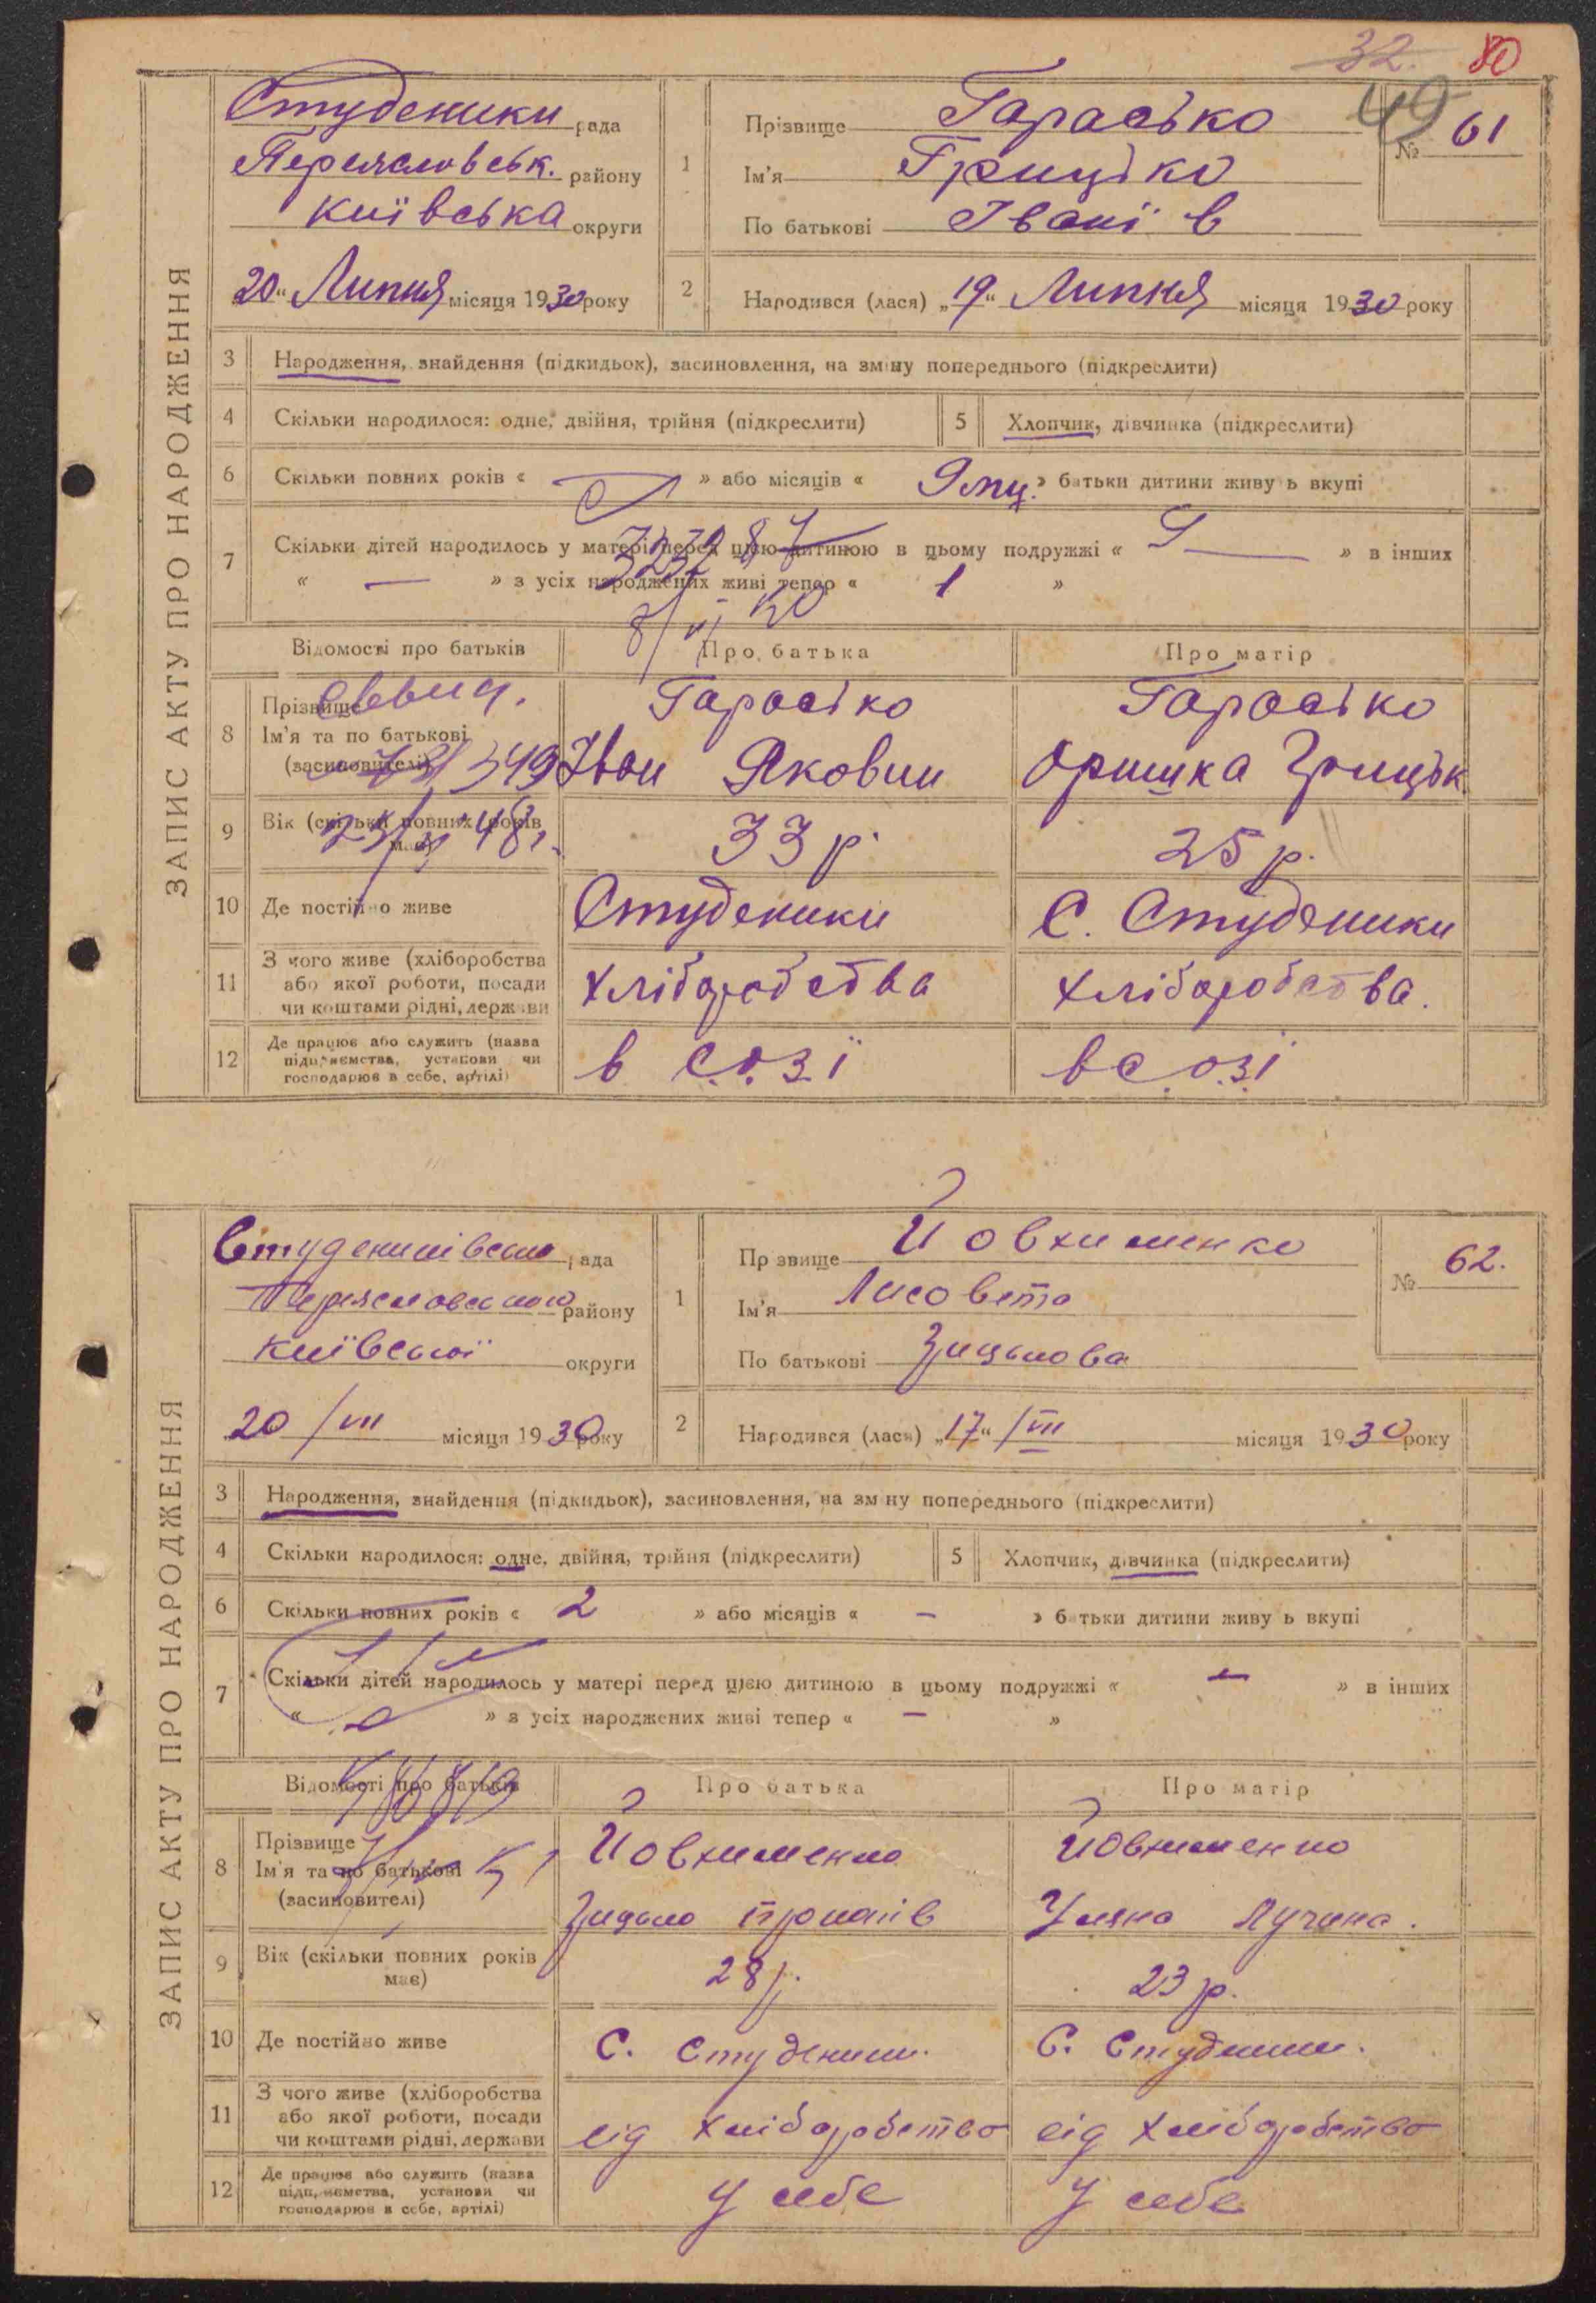 32. 80
49
ЗАПИС АКТУ ПРО НАРОДЖЕННЯ
Студеники рада
Переясловськ. району
Київська округи
„20“ Липня місяця 1930 року
1 Прізвище Гарасько
Ім'я Грицько
По батькові Івані в
№ 61
2 Народився (лася) „19“ Липня місяця 1930 року
3 Народження, знайдення (підкидьок), засиновлення, на зміну попереднього (підкреслити)
4 Скільки народилося: одне, двійня, трійня (підкреслити) 5 Хлопчик, дівчинка (підкреслити)
6 Скільки повних років « » або місяців « 9 мц. » батьки дитини живу ь вкупі
7 Скільки дітей народилось у матері перед цією дитиною в цьому подружжі « » в інших
« — » з усіх народжених живі тепер « 1 »
Відомості про батьків Про батька Про матір
8 Прізвище Гарасько Гарасько
Ім'я та по батькові
(засиновителі) 349 Іван Якович Оришка Грицьк.
9 Вік (скільки повних років має) 33 р. 25 р.
48 г.
10 Де постійно живе Студеники С. Студеники
11 З чого живе (хліборобства
або якої роботи, посади Хліборобства Хліборобства.
чи коштами рідні, держави
12 Де працює або служить (назва
підприємства, установи чи в С.О.З.ї в С.О.З.і
господарює в себе, артілі)
ЗАПИС АКТУ ПРО НАРОДЖЕННЯ
рада
району
Київської округи
20/VII місяця 1930 року
1 Пр звище Йовхименко
Ім'я Лисовета
По батькові Грицькова
№ 62.
2 Народився (лася) „17“/VII місяця 1930 року
3 Народження, знайдення (підкидьок), засиновлення, на зм ну попереднього (підкреслити)
4 Скільки народилося: одне, двійня, трійня (підкреслити) 5 Хлопчик, дівчинка (підкреслити)
6 Скільки повних років « 2 » або місяців « – » б тьки дитини живу ь вкупі
7 Скільки дітей народилось у матері перед цією дитиною в цьому подружжі « – » в інших
« » з усіх народжених живі тепер « – »
Відомості про батьків Про батька Про матір
8 Прізвище Йовхименко Йовхименко
Ім'я та по батькові
(засиновителі) Грицько Уляна
9 Вік (скільки повних років 28 р. 23 р.
має)
10 Де постійно живе С. Студеники. С. Студеники.
11 З чого живе (хліборобства
або якої роботи, посади від хліборобство від хліборобство
чи коштами рідні, держави
12 Де працює або служить (назва
підприємства, установи чи У себе У себе
господарює в себе, артілі)